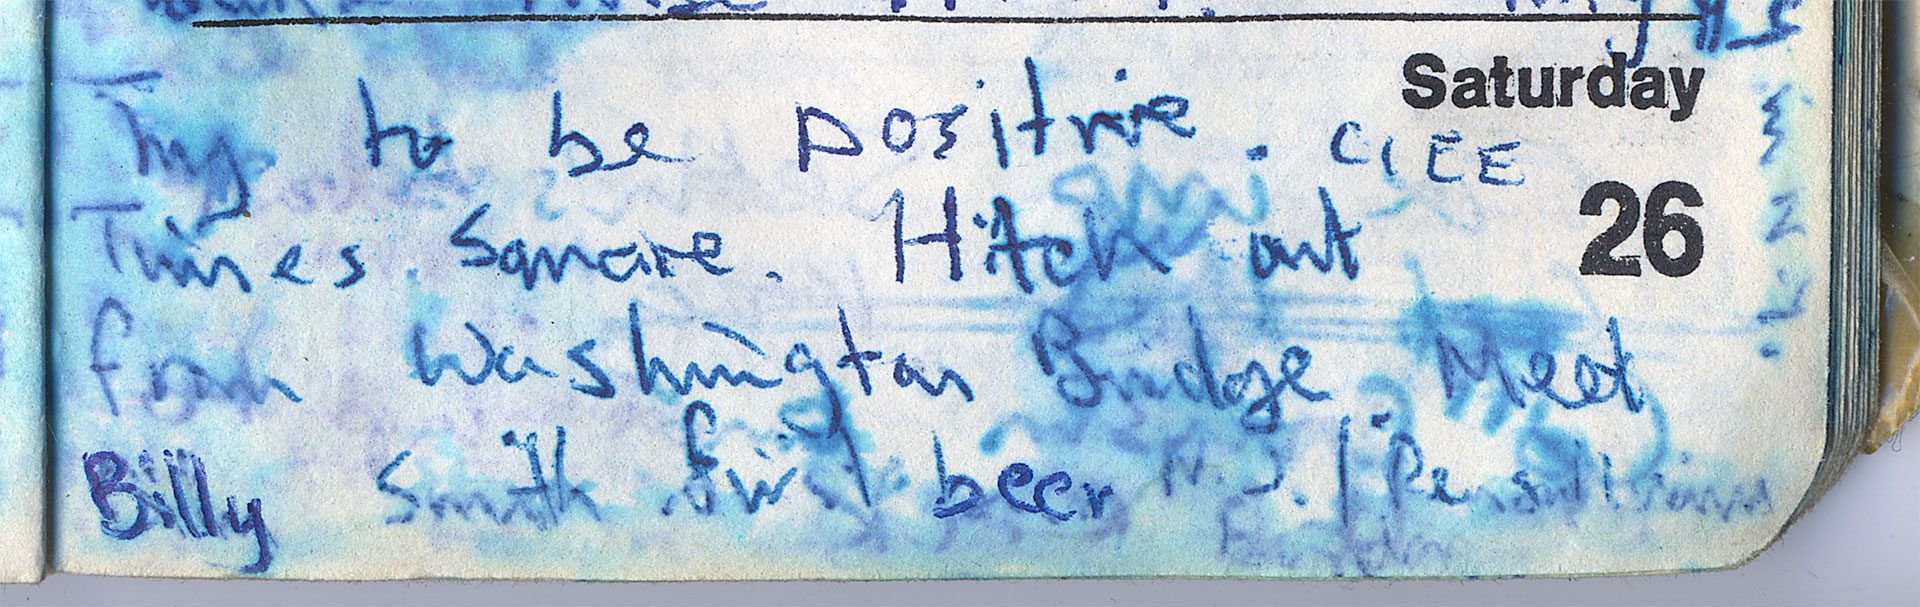 Saturday
26
Try to be positive. CIEE
Times Square. Hitch out
from Washington Bridge. Meet
Billy Smith first beer N.J. /